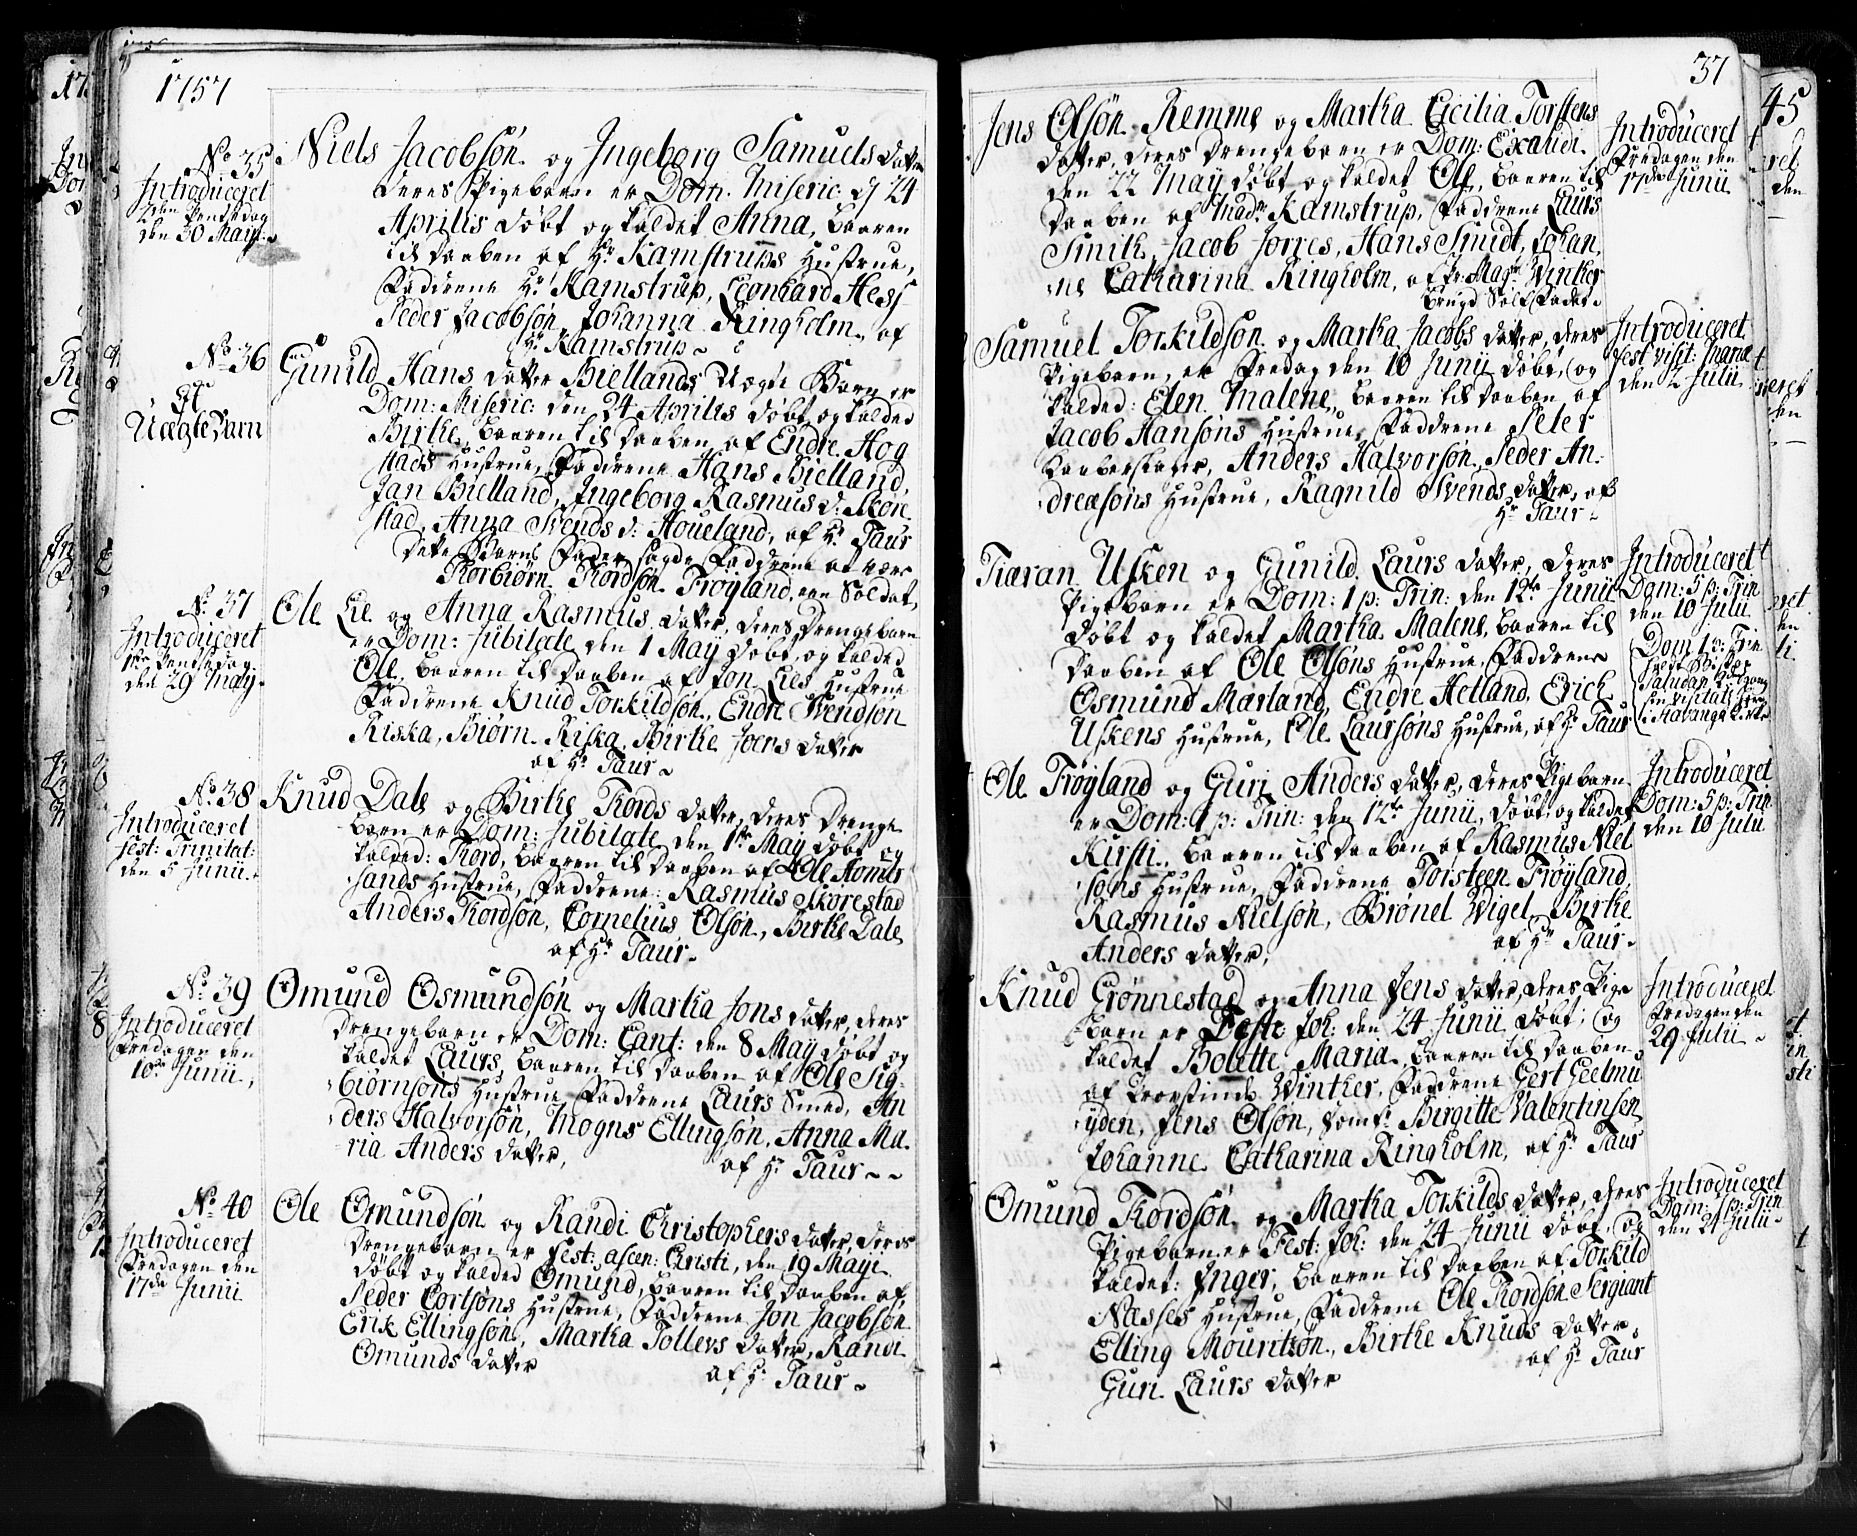 1757
No 35
Introduceret
2den Pentsedag
den 30 Maji
Niels Jacobsön og Ingeborg Samuels datter
deres Pigebarn er Dom. Miseric. d 24
Aprilis döbt og kaldet Anna, baaren
til daaben af Hr Kamstrups Hustrue,
Faddrene Hr Kamstrup, Leonhard Hess
Peder Jacobsön, Johanna Ringholm, af
Hr Kamstrup
No 36
Et
Uægte Barn
Gunild Hans datter Biellands Uægte Barn er
Dom: Miseric: den 24 Aprilis döbt og kaldet
Birthe, baaren til daaben af Endre Hog
stads Hustrue, Faddrene Hans Bielland,
Jan Bielland, Ingeborg Rasmus d: Skore
stad, Anna Svends d: Houeland, af Hr Taur
Dette Barns Fader sagde Faddrene at være
Thorbiørn Thordsön Fröyland, een Soldat,
No 37
Introduceret
1ste Pentsedag
den 29 Maÿ
Ole Lie og Anna Rasmus datter, deres Drengebarn
er Dom: Jubilate den 1 Maÿ döbt, og kaldet
Ole, baaren til daaben af Jon Lies Hustrue
Faddrene Knud Torkildsön, Endre Svendsön
Riska, Biörn Riska, Birthe Joens datter
af Hr Taur
No 38
Introduceret
Fest: Trinitat:
den 5 Junii
Knud Dale og Birthe Thords datter, deres Drenge
barn er Dom: Jubilate, den 1ste Maÿ döbt og
kaldet: Thord, baaren til daaben af Ole Homer
sands Hustrue, Faddrene: Rasmus Skorestad
Anders Thordsön, Cornelius Olsön, Birthe Dale
af Hr Taur
No 39
Introduceret
Fredagen den
10de Junii,
Omund Osmundsön og Martha Jons datter, deres
Drengebarn er Dom: Cant: den 8 Maÿ döbt og
kaldet Laurs, baaren til daaben af Ole Sig-
biörnsöns Hustrue, Faddrene Laurs Smed, An
ders Halvorsön, Mogns Ellingsön, Anna Ma-
ria Anders datter,
af Hr Taur
No 40
Introduceret
Fredagen den
17de Junii
Ole Omundsön og Randi Christophers datter, deres
Drengebarn er Fest: ascen: Christi, den 19 Maji
döbt og kaldet Omund, baaren til daaben af
Peder Cortsöns Hustrue, Faddrene Jon Jacobsön
Erik Ellingsön, Martha Tollevs datter, Randi
Omunds datter
af Hr Taur
37
Jens Olsön Remme og Martha Cicilia Torstens
datter, deres Drengebarn er Dom: Exaudi
den 22 Maÿ döbt og kaldet Ole, baaren til
daaben af Madme Kamstrup, Faddrene Laurs
Smith, Jacob Jorres, Hans Smidt, Johan
ne Catharina Ringholm, af Hr Magr Winther
Introduceret
Fredagen den
17de Junii
Samuel Torkildsön og Martha Jacobs datter, deres
Pigebarn, er Fredag den 10 Junij döbt, og
kaldet: Elen Malene, baaren til daaben af
Jacob Hansöns Hustrue, Faddrene Peter
Anders Halvorsön, Peder An-
dreæsöns Hustrue, Ragnild Svends datter, af
Hr Taur
Introduceret
Fest visit: Mariæ
den 2 Julii
Tiæran Usken og Gunild Laurs datter, deres
Pigebarn er Dom: 1 p: Trin: den 12te Junii
döbt og kaldet Martha Malene, baaren til
daaben af Ole Olsöns Hustrue, Faddrene
Osmund Marland, Endre Hetland, Erich
Uskens Hustrue, Ole Laursöns Hustrue, af Hr Taur
Introduceret
Dom: 5 p: Trin
den 10 Julii
Dom 1 p: Trin
holdt Bisper
Paludan
sin visitats her
i Stavanger Kirke
Ole Fröyland og Guri Anders datter, deres Pigebarn
er Dom: 1 p: Trin: den 12te Junii, döbt, og kaldet
Kirsti, baaren til daaben af Rasmus Niel
sons Hustrue, Faddrene Torsteen Fröyland
Rasmus Nielsön, Brönel Wigel, Birthe
Anders datter,
af Hr Taur
Introduceret
Dom: 5 p: Trin
den 10 Julii
Knud Grönnestad og Anna Jens datter, deres Pige
barn er Festo Joh: den 24 Junii döbt, og
kaldet Bolette Maria, baaren til daaben
af Provstinde Winther, Faddrene Gert Geelmu
yden, Jens Olsön, Jomfr Birgitte Valentinsen
Johanne Catharina Ringholm, af Hr Taur
Introduceret
Fredagen den
29 Julii
Omund Thordsön og Martha Torkilds datter, deres
Pigebarn er Fest: Joh: den 24 Junii döbt, og
kaldet: Inger, baaren til daaben af Torkild
Næsses Hustrue, Faddrene Ole Thordsön Sergiant
Elling Mouritsön, Birthe Knuds datter
Guri Laurs datter
af Hr Taur
Introduceret
Dom: 7 p: Trin
den 24 Julii
45